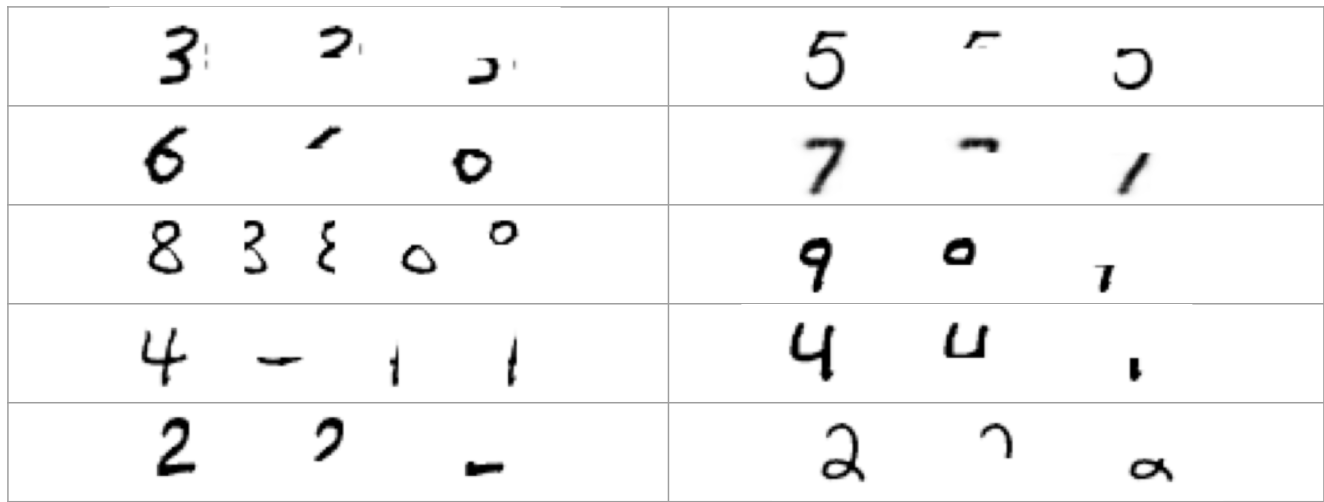 3 5
6 7
8 9
4 4
2 2